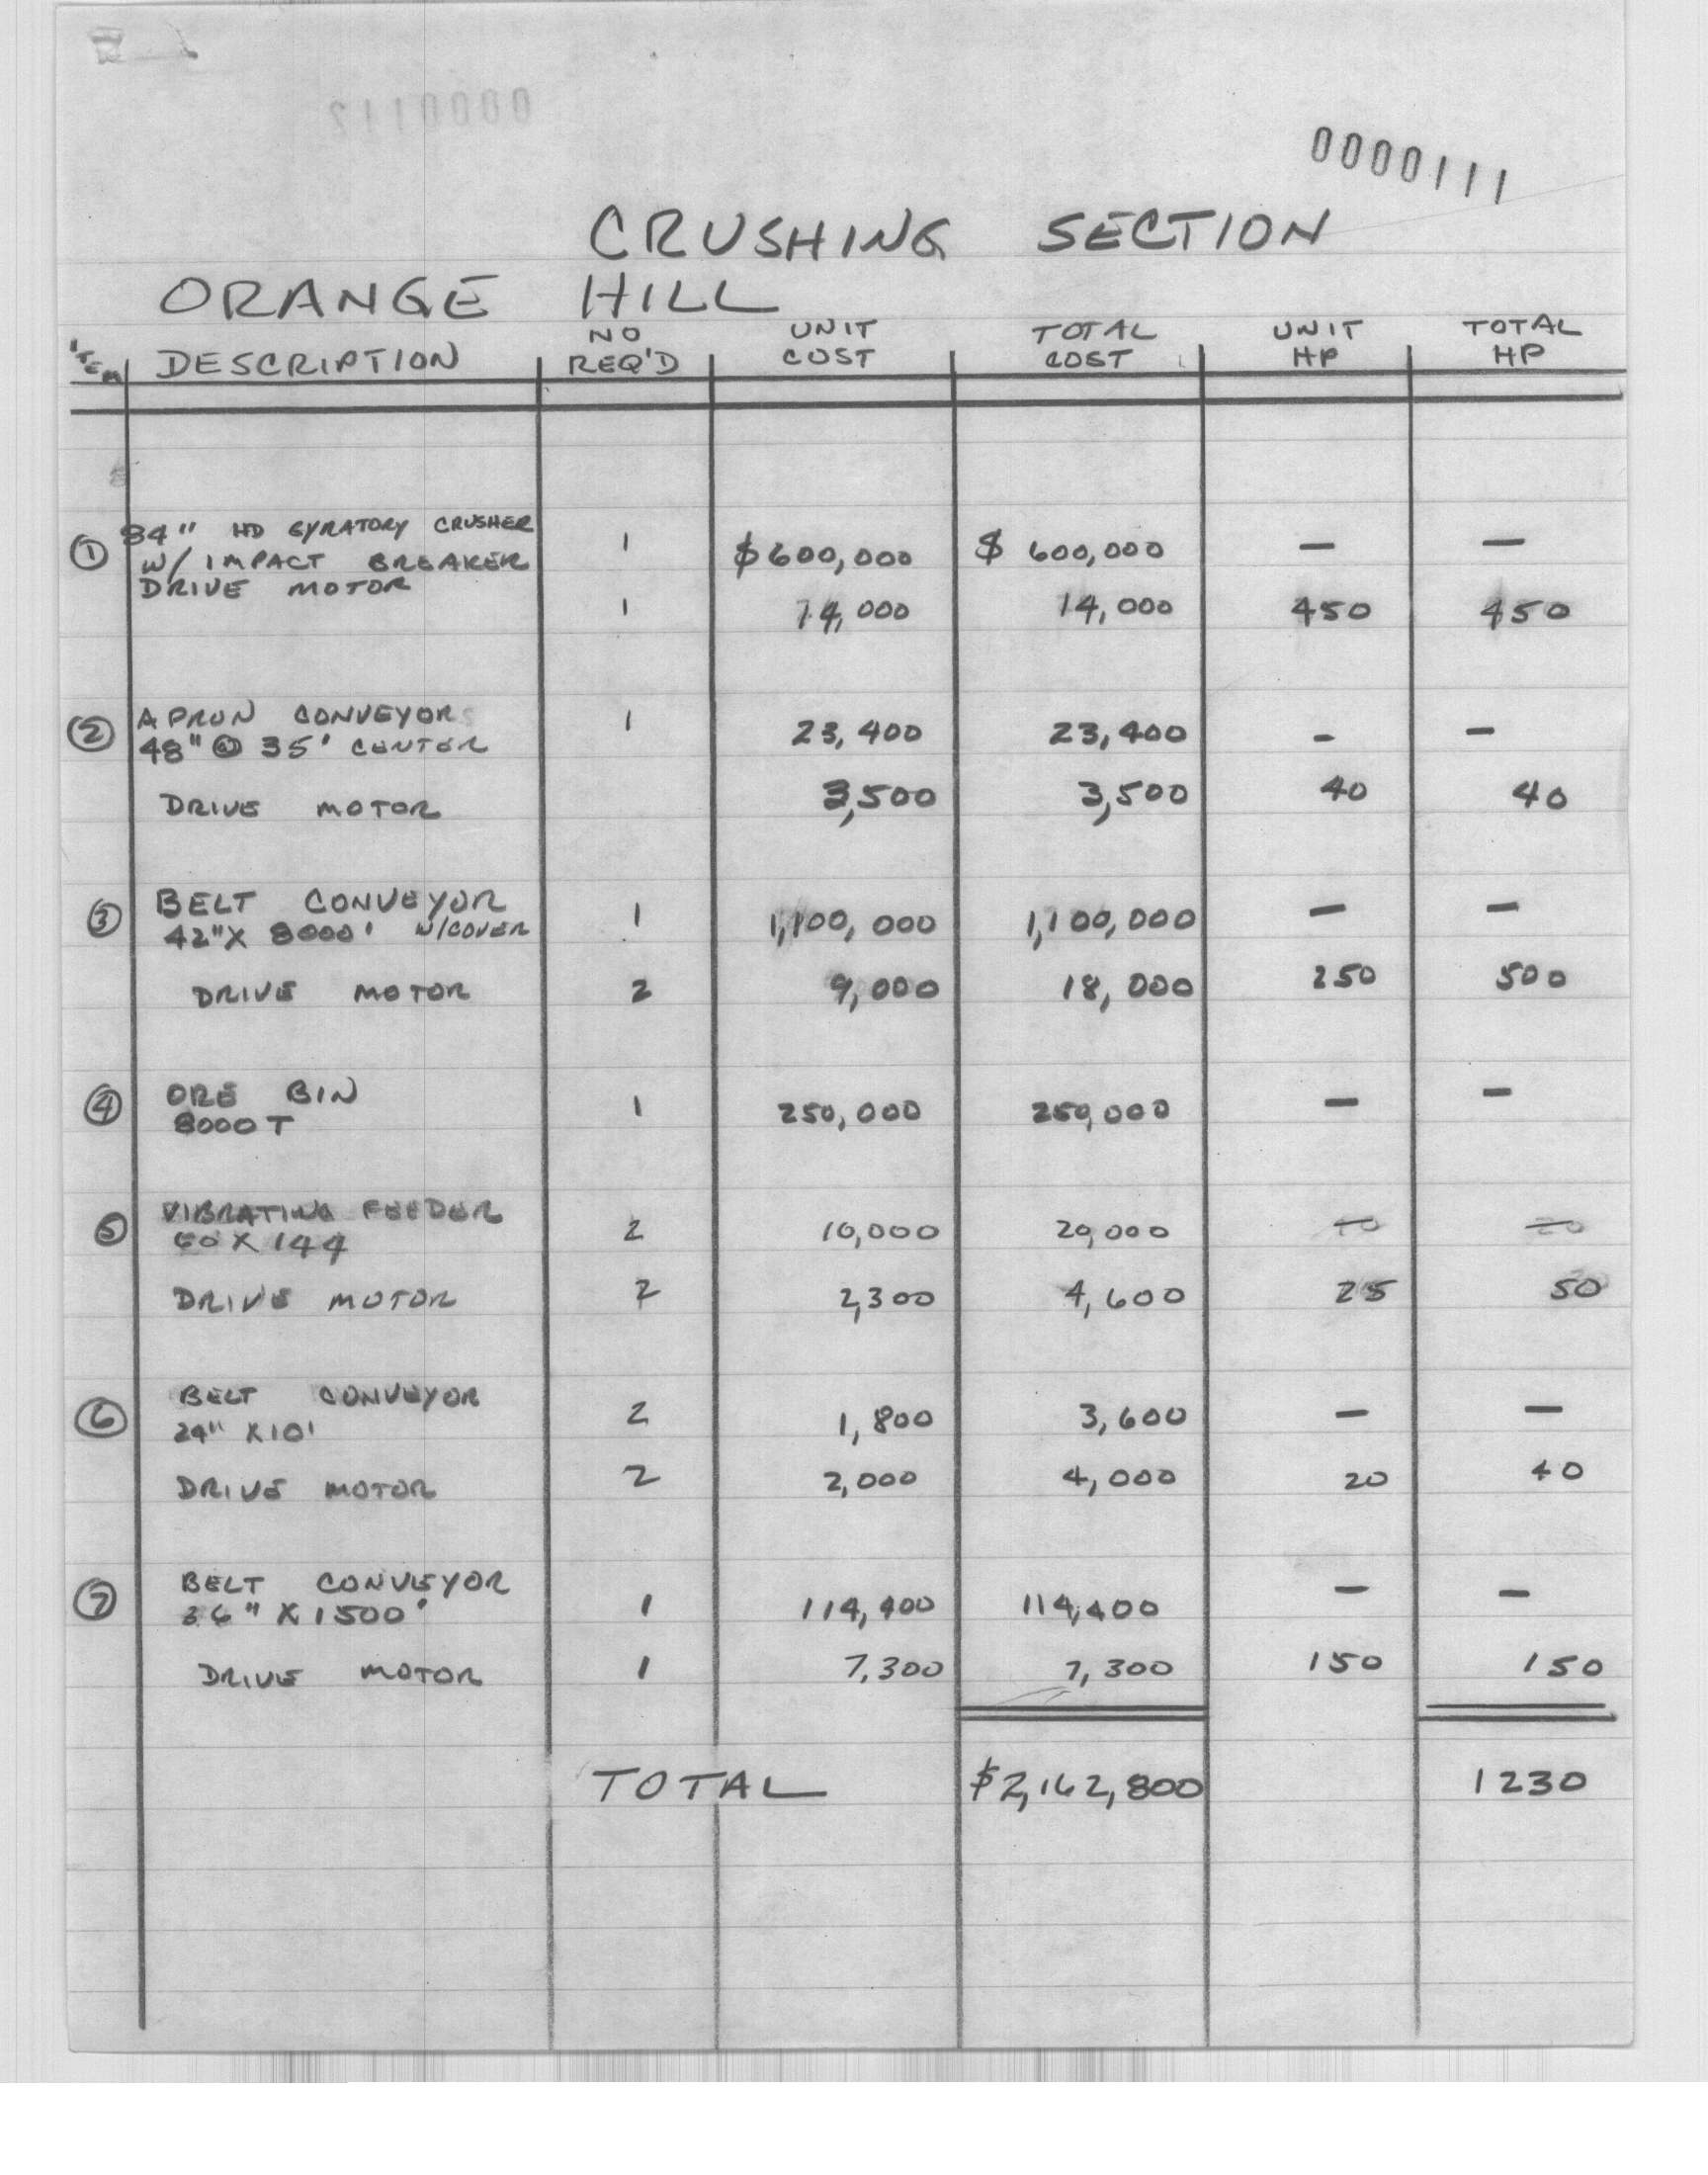 0000112
0000111
CRUSHING SECTION
ORANGE HILL
ITEM DESCRIPTION NO REQ'D UNIT COST TOTAL COST UNIT HP TOTAL HP
① 84" HD GYRATORY CRUSHER
W/ IMPACT BREAKER 1 $600,000 $ 600,000 — —
DRIVE MOTOR 1 14,000 14,000 450 450
② APRON CONVEYOR 1 23,400 23,400 - —
48" @ 35' CENTER
DRIVE MOTOR 3,500 3,500 40 40
③ BELT CONVEYOR 1 1,100,000 1,100,000 — —
42" X 8000' W/COVER
DRIVE MOTOR 2 9,000 18,000 250 500
④ ORE BIN 1 250,000 250,000 — —
8000 T
⑤ VIBRATING FEEDER 2 10,000 20,000 10 20
60 X 144
DRIVE MOTOR 2 2,300 4,600 25 50
⑥ BELT CONVEYOR 2 1,800 3,600 — —
24" X 10'
DRIVE MOTOR 2 2,000 4,000 20 40
⑦ BELT CONVEYOR 1 114,400 114,400 — —
36" X 1500'
DRIVE MOTOR 1 7,300 7,300 150 150
TOTAL $2,162,800 1230